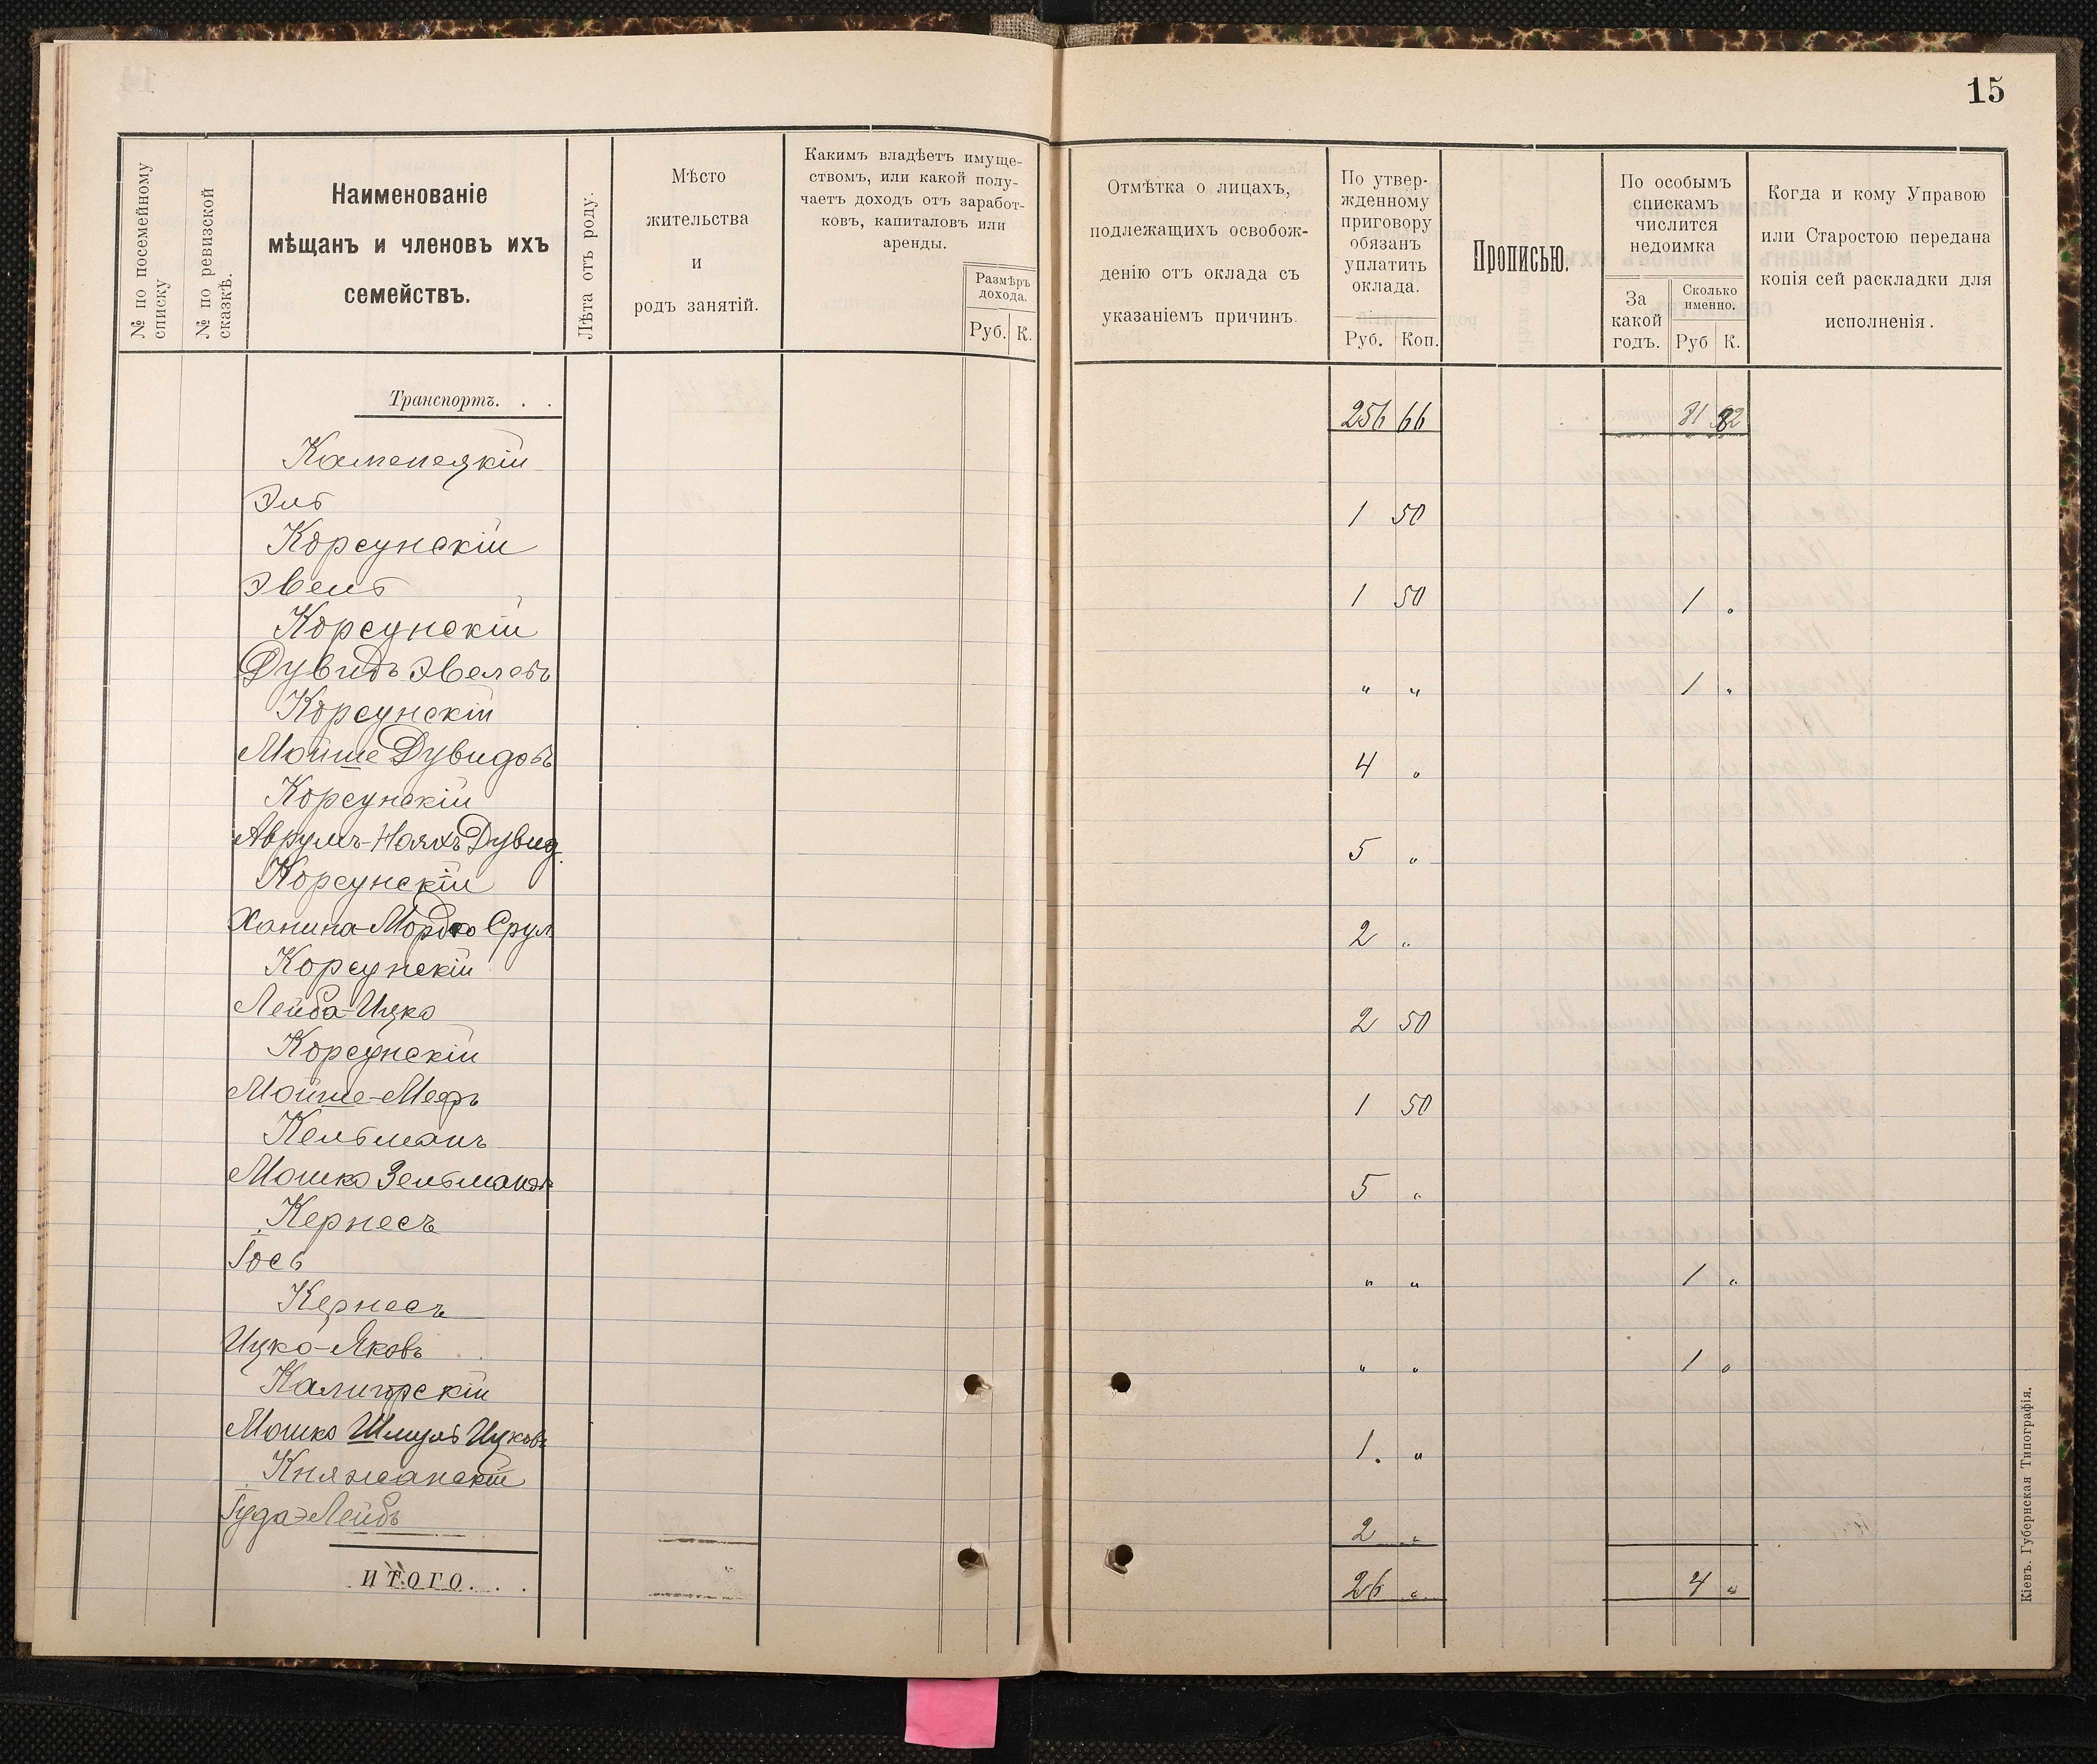 15
№ по посемейному списку
№ по ревизской сказкѣ.
Наименованіе
мѣщанъ и членовъ ихъ
семействъ.
Лѣта отъ роду.
Мѣсто
жительства
и
родъ занятій.
Какимъ владѣетъ имуще-
ствомъ, или какой полу-
чаетъ доходъ отъ заработ-
ковъ, капиталовъ или
аренды.
Размѣръ
дохода.
Руб. К.
Отмѣтка о лицахъ,
подлежащихъ освобож-
денію отъ оклада съ
указаніемъ причинъ.
По утвер-
жденному
приговору
обязанъ
уплатить
оклада.
Руб. Коп.
Прописью.
По особымъ
спискамъ
числится
недоимка
За
какой
годъ.
Сколько
именно.
Руб К.
Когда и кому Управою
или Старостою передана
копія сей раскладки для
исполненія.
Транспортъ. . . 256 66
Каменецкій
Эль 1 50
Корсунскій
Эвель 1 50 1 "
Корсунскій
Дувидъ Эвелевъ " " 1 "
Корсунскій
Мойше Дувидовъ 4 "
Корсунскій
Аврумъ-Нояхъ Дувид. 5 "
Корсунскій
Ханина-Мордко Срул 2 "
Корсунскій
Лейба-Ицко 2 50
Корсунскій
Мойше-Меэръ 1 50
Кельманъ
Мошко Зельманов 5 "
Кернесъ
Іось " " 1 "
Кернесъ
Ицко-Яковъ " " 1 "
Калигорскій
Мошко Шмуль Ицковъ 1. "
Княжанскій
Іуда-Лейбъ 2 "
ИТОГО. . . 26 " 4 "
Кіевъ. Губернская Типографія.